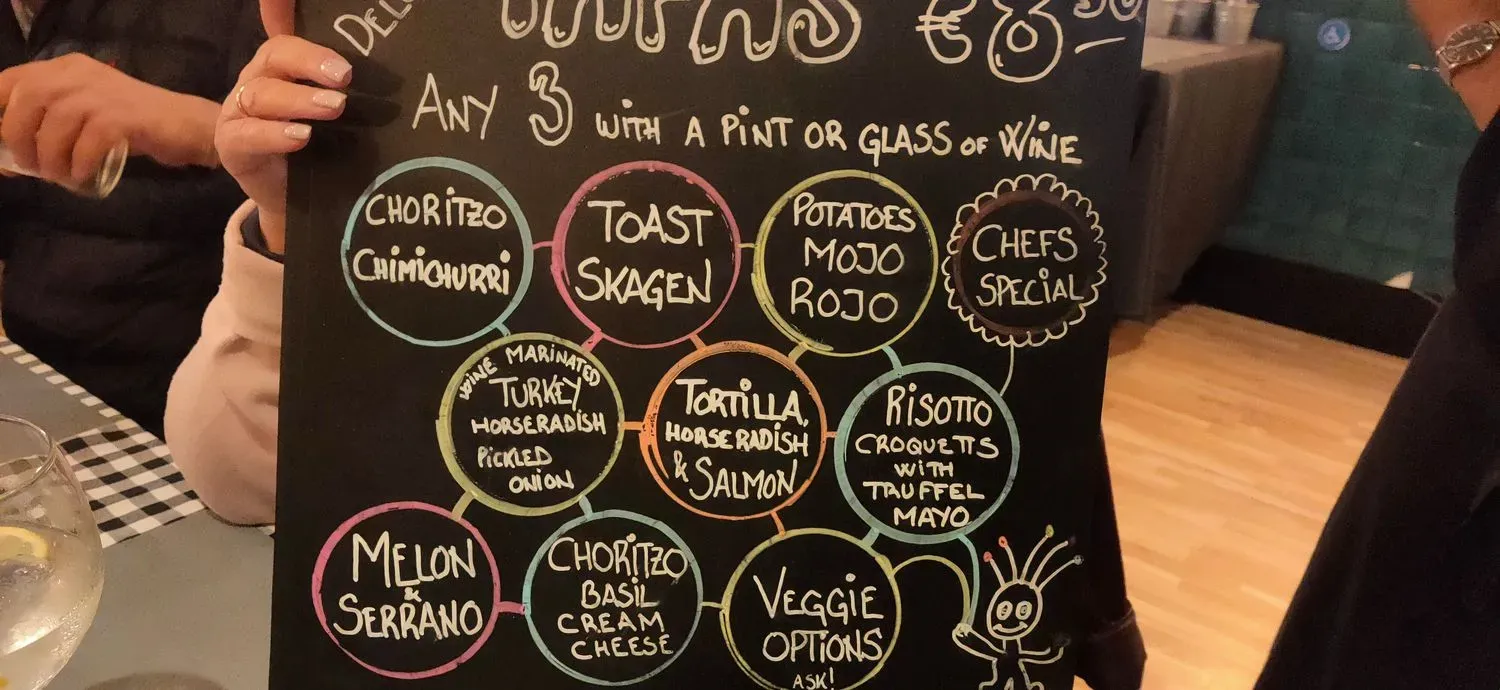 TAPAS €8.50
ANY 3 WITH A PINT OR GLASS OF WINE
CHORITZO
CHIMICHURRI
TOAST
SKAGEN
POTATOES
MOJO
ROJO
CHEFS
SPECIAL
WINE MARINATED
TURKEY
HORSERADISH
PICKLED
ONION
TORTILLA,
HORSERADISH
& SALMON
RISOTTO
CROQUETTS
WITH
TRUFFEL
MAYO
MELON
&
SERRANO
CHORITZO
BASIL
CREAM
CHEESE
VEGGIE
OPTIONS
ASK!